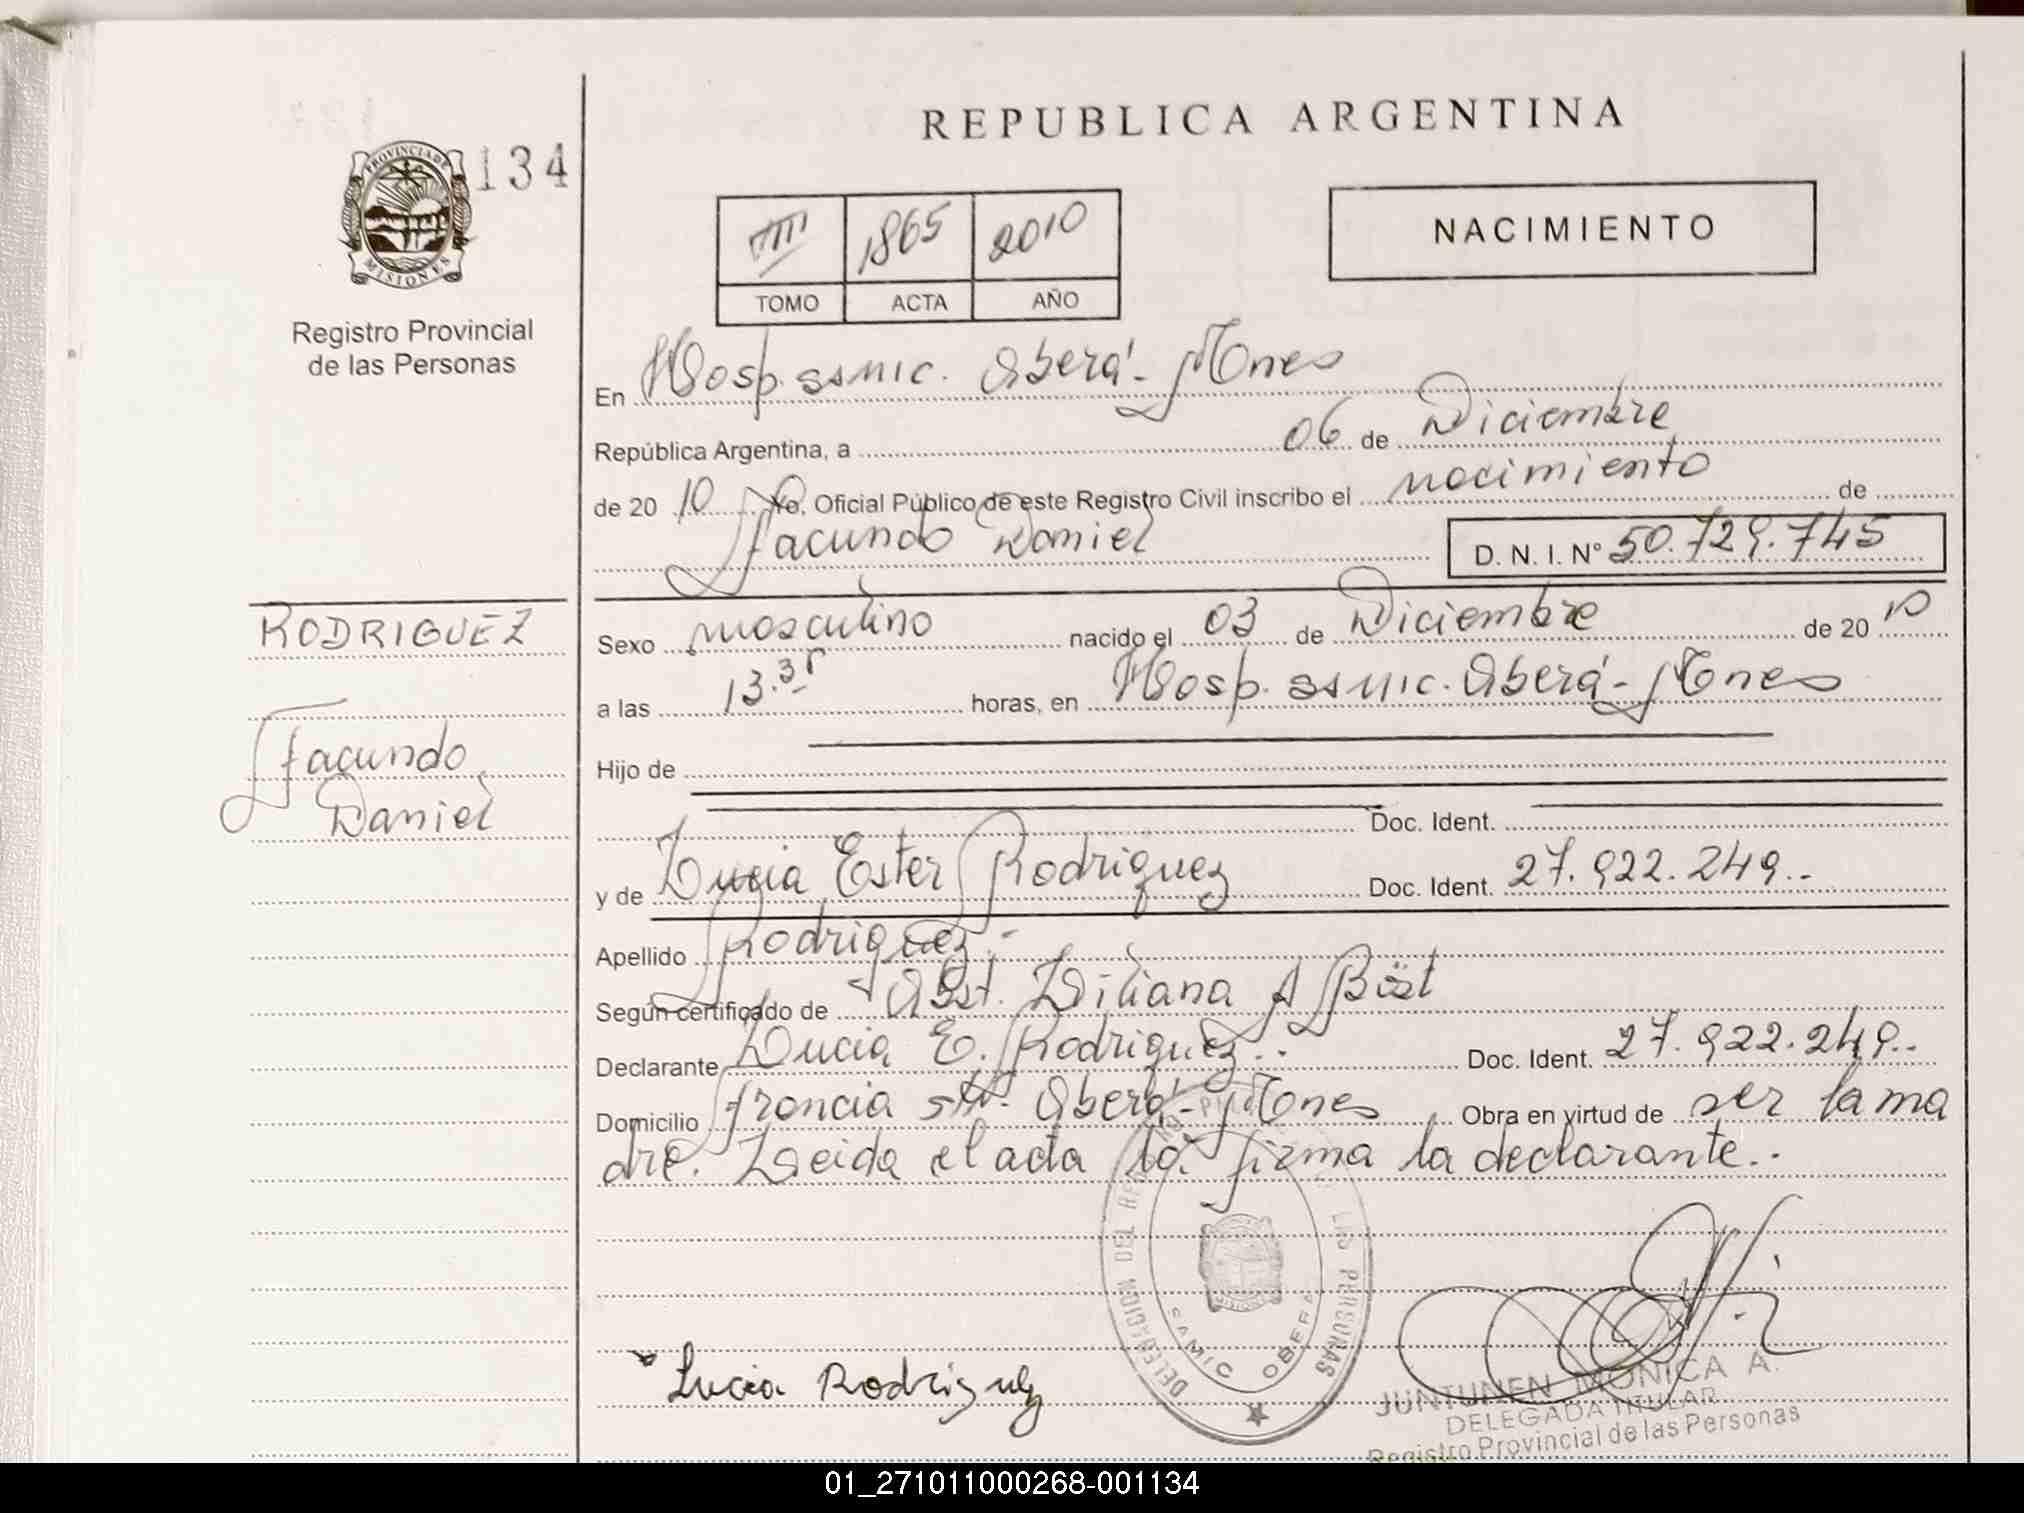 REPUBLICA ARGENTINA
PROVINCIA DE
MISIONES
134
Registro Provincial
de las Personas
1865 2010
TOMO ACTA AÑO
NACIMIENTO
En Hosp. SAMIC. Oberá - Mnes
República Argentina, a 06 de Diciembre
de 20 10 Yo, Oficial Público de este Registro Civil inscribo el nacimiento de
Facundo Daniel D. N. I. N° 50.729.745
RODRIGUEZ
Facundo
Daniel
Sexo masculino nacido el 03 de Diciembre de 20 10
a las 13.35 horas, en Hosp. SAMIC. Oberá - Mnes
Hijo de
Doc. Ident.
y de Lucia Ester Rodriguez Doc. Ident. 27.922.249..
Apellido Rodriguez.-
Según certificado de Obst. Liliana A
Declarante Lucia E. Rodriguez.. Doc. Ident. 27.922.249..
Domicilio Francia s/n. Oberá - Mnes Obra en virtud de ser la ma
dre. Leida el acta la firma la declarante..
DELEGACION DEL REG. LAS PERSONAS
SAMIC OBERA
Lucia Rodriguez
JUNTUNEN MONICA A.
DELEGADA TITULAR
Registro Provincial de las Personas
01_271011000268-001134